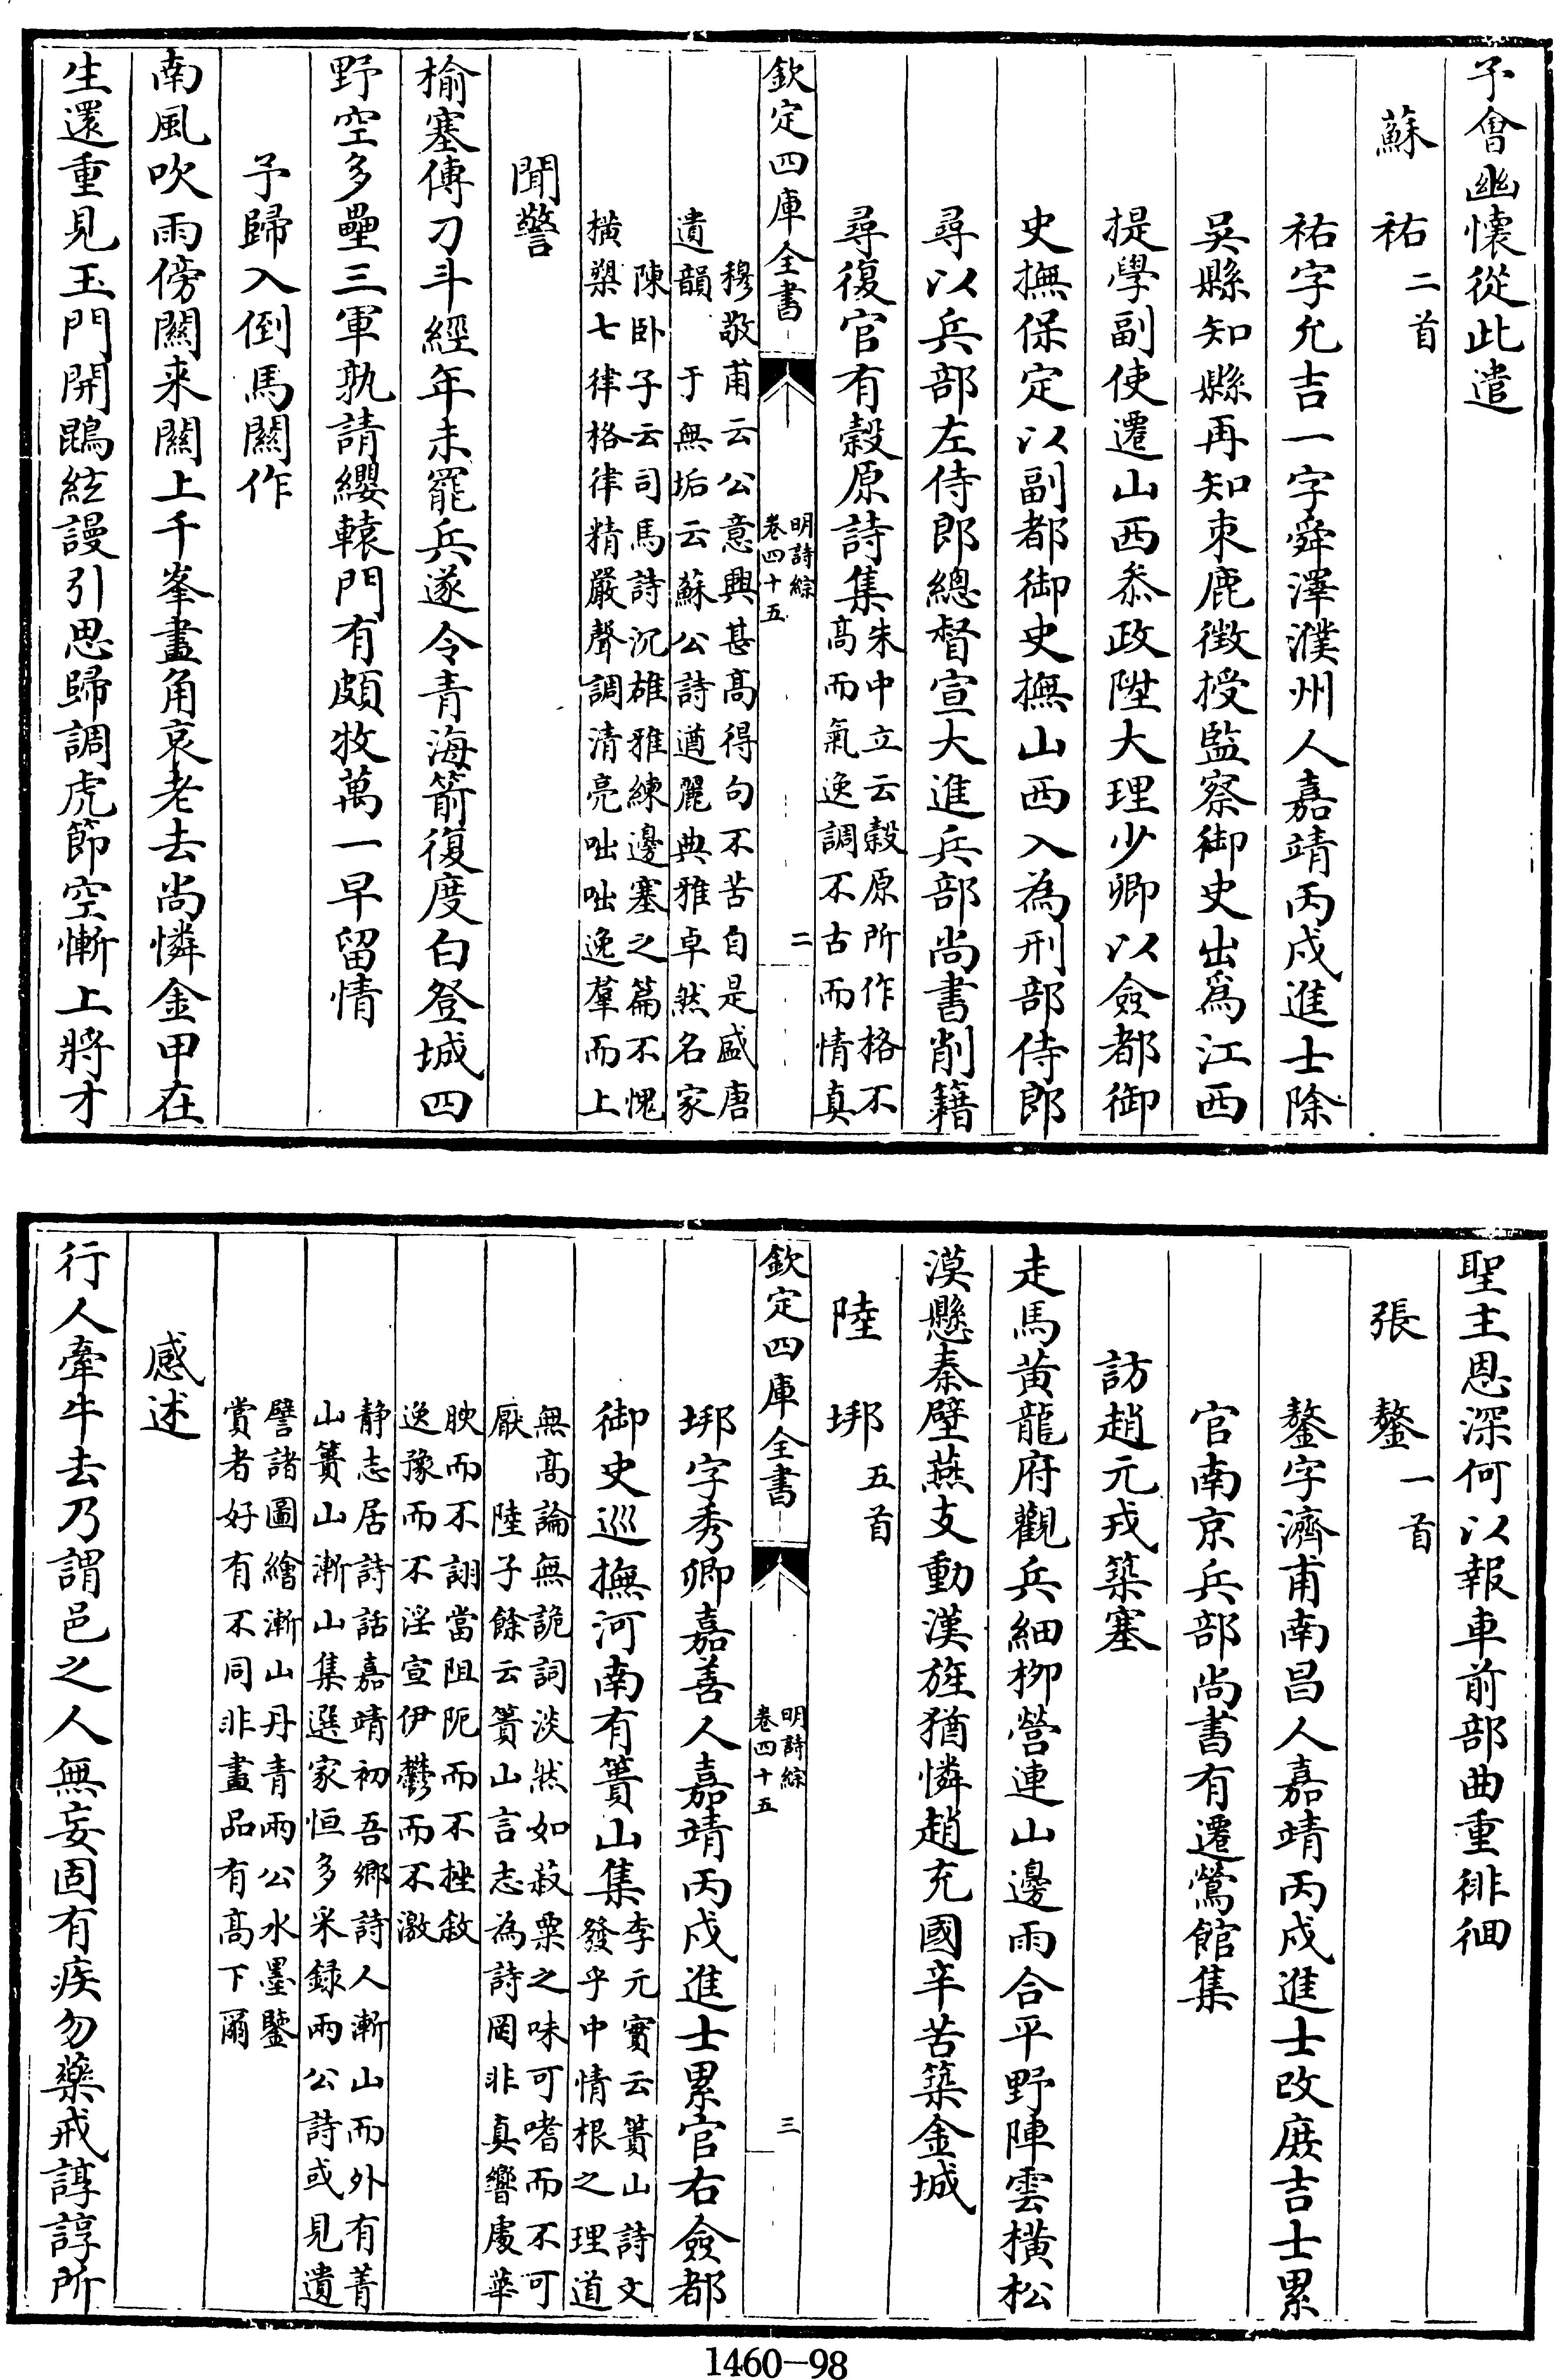 予會幽懷從此遣
蘇祐二首
祐字允吉一字舜澤濮州人嘉靖丙戍進士除
吳縣知縣再知束鹿徴授監察御史出爲江西
提學副使遷山西叅政陞大理少卿以僉都御
史撫保定以副都御史撫山西入為刑部侍郎
尋以兵部左侍郎總督宣大進兵部尚書削籍
尋復官有榖原詩集朱中立云榖原所作格不
高而氣逸調不古而情真
欽定四庫全書
明詩綜
卷四十五
二
穆敬甫云公意興甚高得句不苦自是盛唐
遺韻 于無垢云蘇公詩遒麗典雅卓然名家
陳卧子云司馬詩沉雄雅練邊塞之篇不愧
橫槊七律格律精嚴聲調清亮咄咄逸羣而上
聞警
榆塞傳刀斗經年未罷兵遂令青海箭復度白登城四
野空多壘三軍孰請纓轅門有頗牧萬一早留情
予歸入倒馬關作
南風吹雨傍關来關上千峯畫角哀老去尚憐金甲在
生還重見玉門開鵾絃謾引思歸調虎節空慚上將才
聖主恩深何以報車前部曲重徘徊
張鏊一首
鏊字濟甫南昌人嘉靖丙戍進士改庶吉士累
官南京兵部尚書有遷鶯館集
訪趙元戎築塞
走馬黄龍府觀兵細栁營連山邊雨合平野陣雲橫松
漠懸秦壁燕支動漢旌猶憐趙充國辛苦築金城
陸垹五首
垹字秀卿嘉善人嘉靖丙戍進士累官右僉都
御史巡撫河南有簣山集李元實云簣山詩文
發乎中情根之理道
欽定四庫全書
明詩綜
卷四十五
三
無高論無詭詞淡然如菽粟之味可嗜而不可
厭 陸子餘云簣山言志為詩罔非真響處華
腴而不詡當阻阨而不挫敘
逸豫而不淫宣伊鬱而不激
静志居詩話嘉靖初吾鄉詩人漸山而外有菁
山簣山漸山集選家恒多采録兩公詩或見遺
譬諸圖繪漸山丹青兩公水墨鑒
賞者好有不同非畫品有高下爾
感述
行人牽牛去乃謂邑之人無妄固有疾勿藥戒諄諄所
1460-98